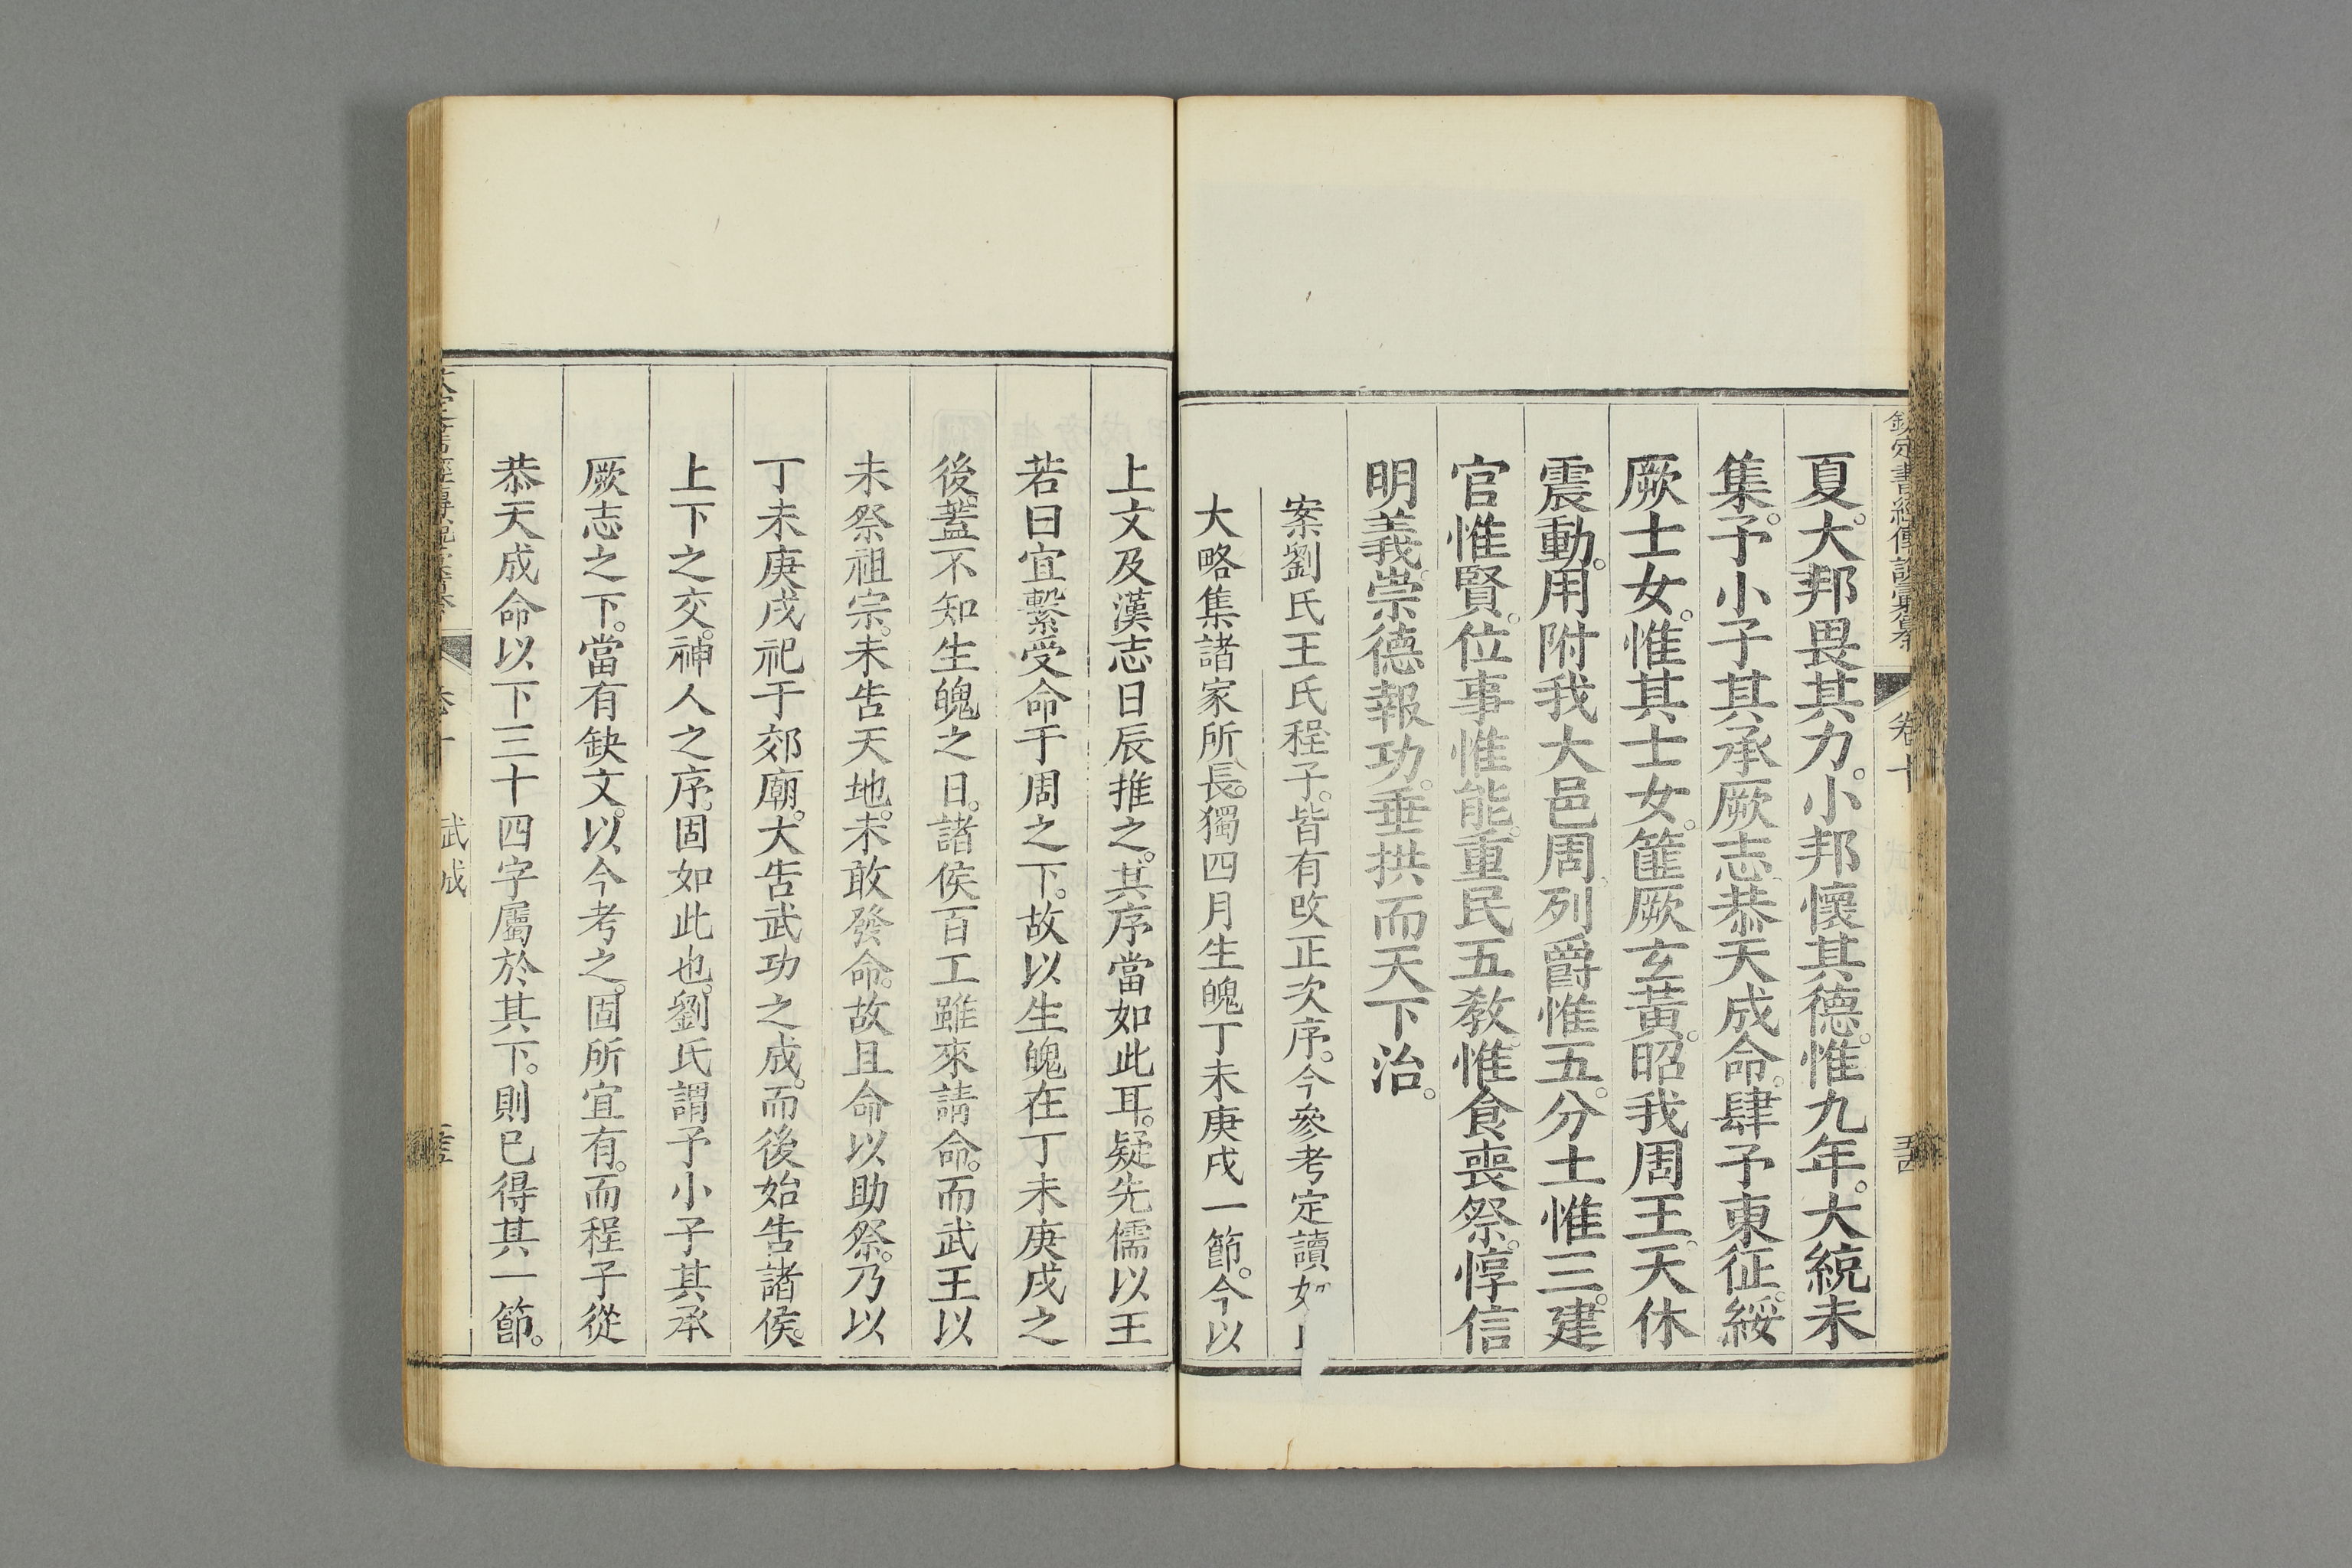 欽定書經傳說彙纂 卷十
夏。大邦畏其力。小邦懷其德。惟九年。大統未
集。予小子其承厥志。恭天成命。肆予東征。綏
厥士女。惟其士女。篚厥玄黃。昭我周王。天休
震動。用附我大邑周。列爵惟五。分土惟三。建
官惟賢。位事惟能。重民五教。惟食喪祭。惇信
明義。崇德報功。垂拱而天下治。
案劉氏王氏程子。皆有改正次序。今參考定讀如
大略集諸家所長。獨四月生魄丁未庚戌一節。今以
上文及漢志日辰推之。其序當如此耳。疑先儒以王
若曰宜繫受命于周之下。故以生魄在丁未庚戌之
後。蓋不知生魄之日。諸侯百工雖來請命。而武王以
未祭祖宗。未告天地。未敢發命。故且命以助祭。乃以
丁未庚戌祀于郊廟。大告武功之成。而後始告諸侯。
上下之交。神人之序。固如此也。劉氏謂予小子其承
厥志之下。當有缺文。以今考之。固所宜有。而程子從
恭天成命以下三十四字屬於其下。則已得其一節。
武成